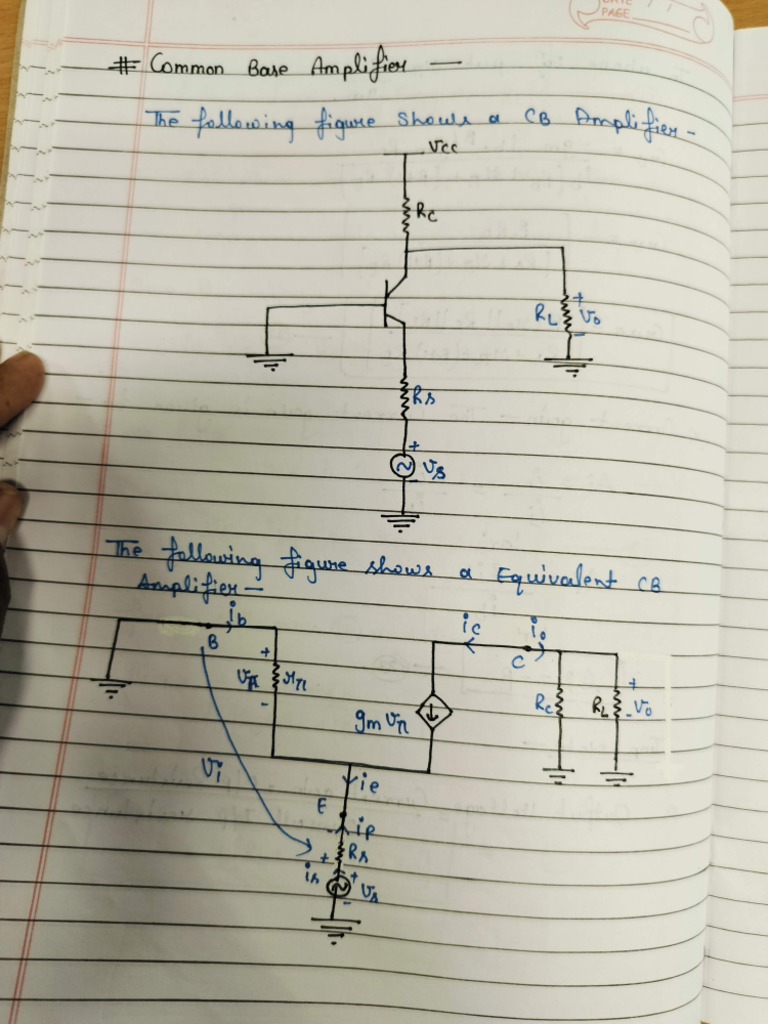 DATE
PAGE
# Common Base Amplifier —
The following figure shows a CB Amplifier -
Vcc
Rc
RL
+
Vo
-
Rs
+
~
Vs
-
The following figure shows a Equivalent CB
Amplifier -
ib
B
+
Vπ
rπ
-
ic
io
C
gm Vπ
Rc
RL
+
Vo
-
Vi
ie
E
-
ip
+
Rs
is
~
+
Vs
-